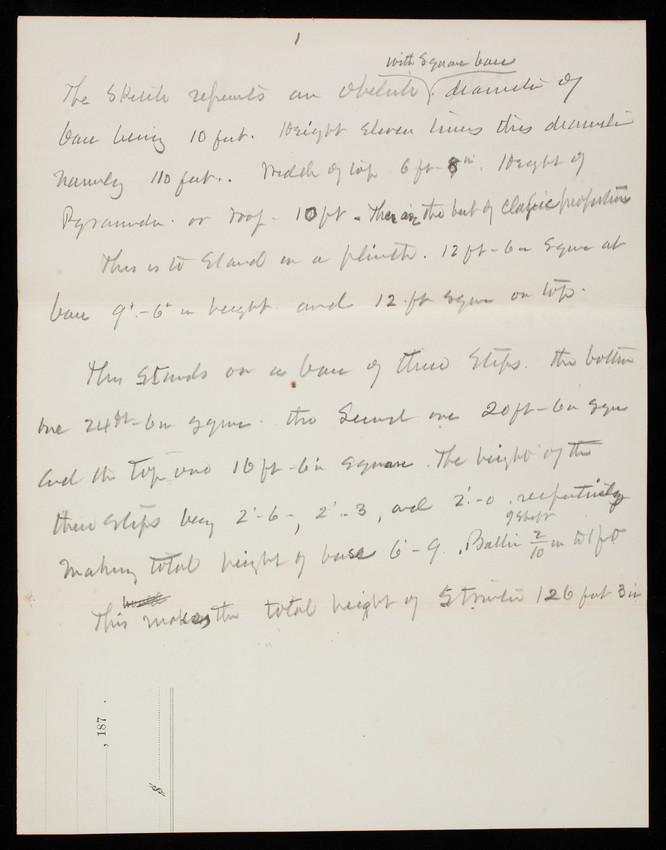 1
with Square base
The Sketch represents an Obelisk. diameter of
base being 10 feet. Height Eleven times this diameter
namely 110 feet. Width of top 6 ft - 8 in. Height of
Pyramid or roof - 10 ft. the best of classic proportions
This is to Stand on a plinth. 12 ft - 6 in square at
base 9' - 6" in height and 12 ft square on top.
This Stands on a base of three Steps. the bottom
one 24 ft - 6 in square. the Second one 20 ft - 6 in square
and the top one 16 ft - 6 in square. The height of the
three steps being 2' - 6 -, 2' - 3, and 2' - 0. respectively
of Shaft
Making total height of base 6' - 9. Batter 2/10 in to 1 foot
This makes the total height of Structure 126 feet 3 in
, 187 .
$